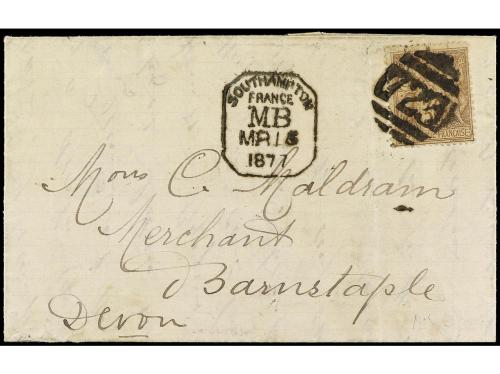 SOUTHAMPTON
FRANCE
MB
MR 15
1877
723
FRANÇAISE
Mons C. Maldram
Merchant
Barnstaple
Devon